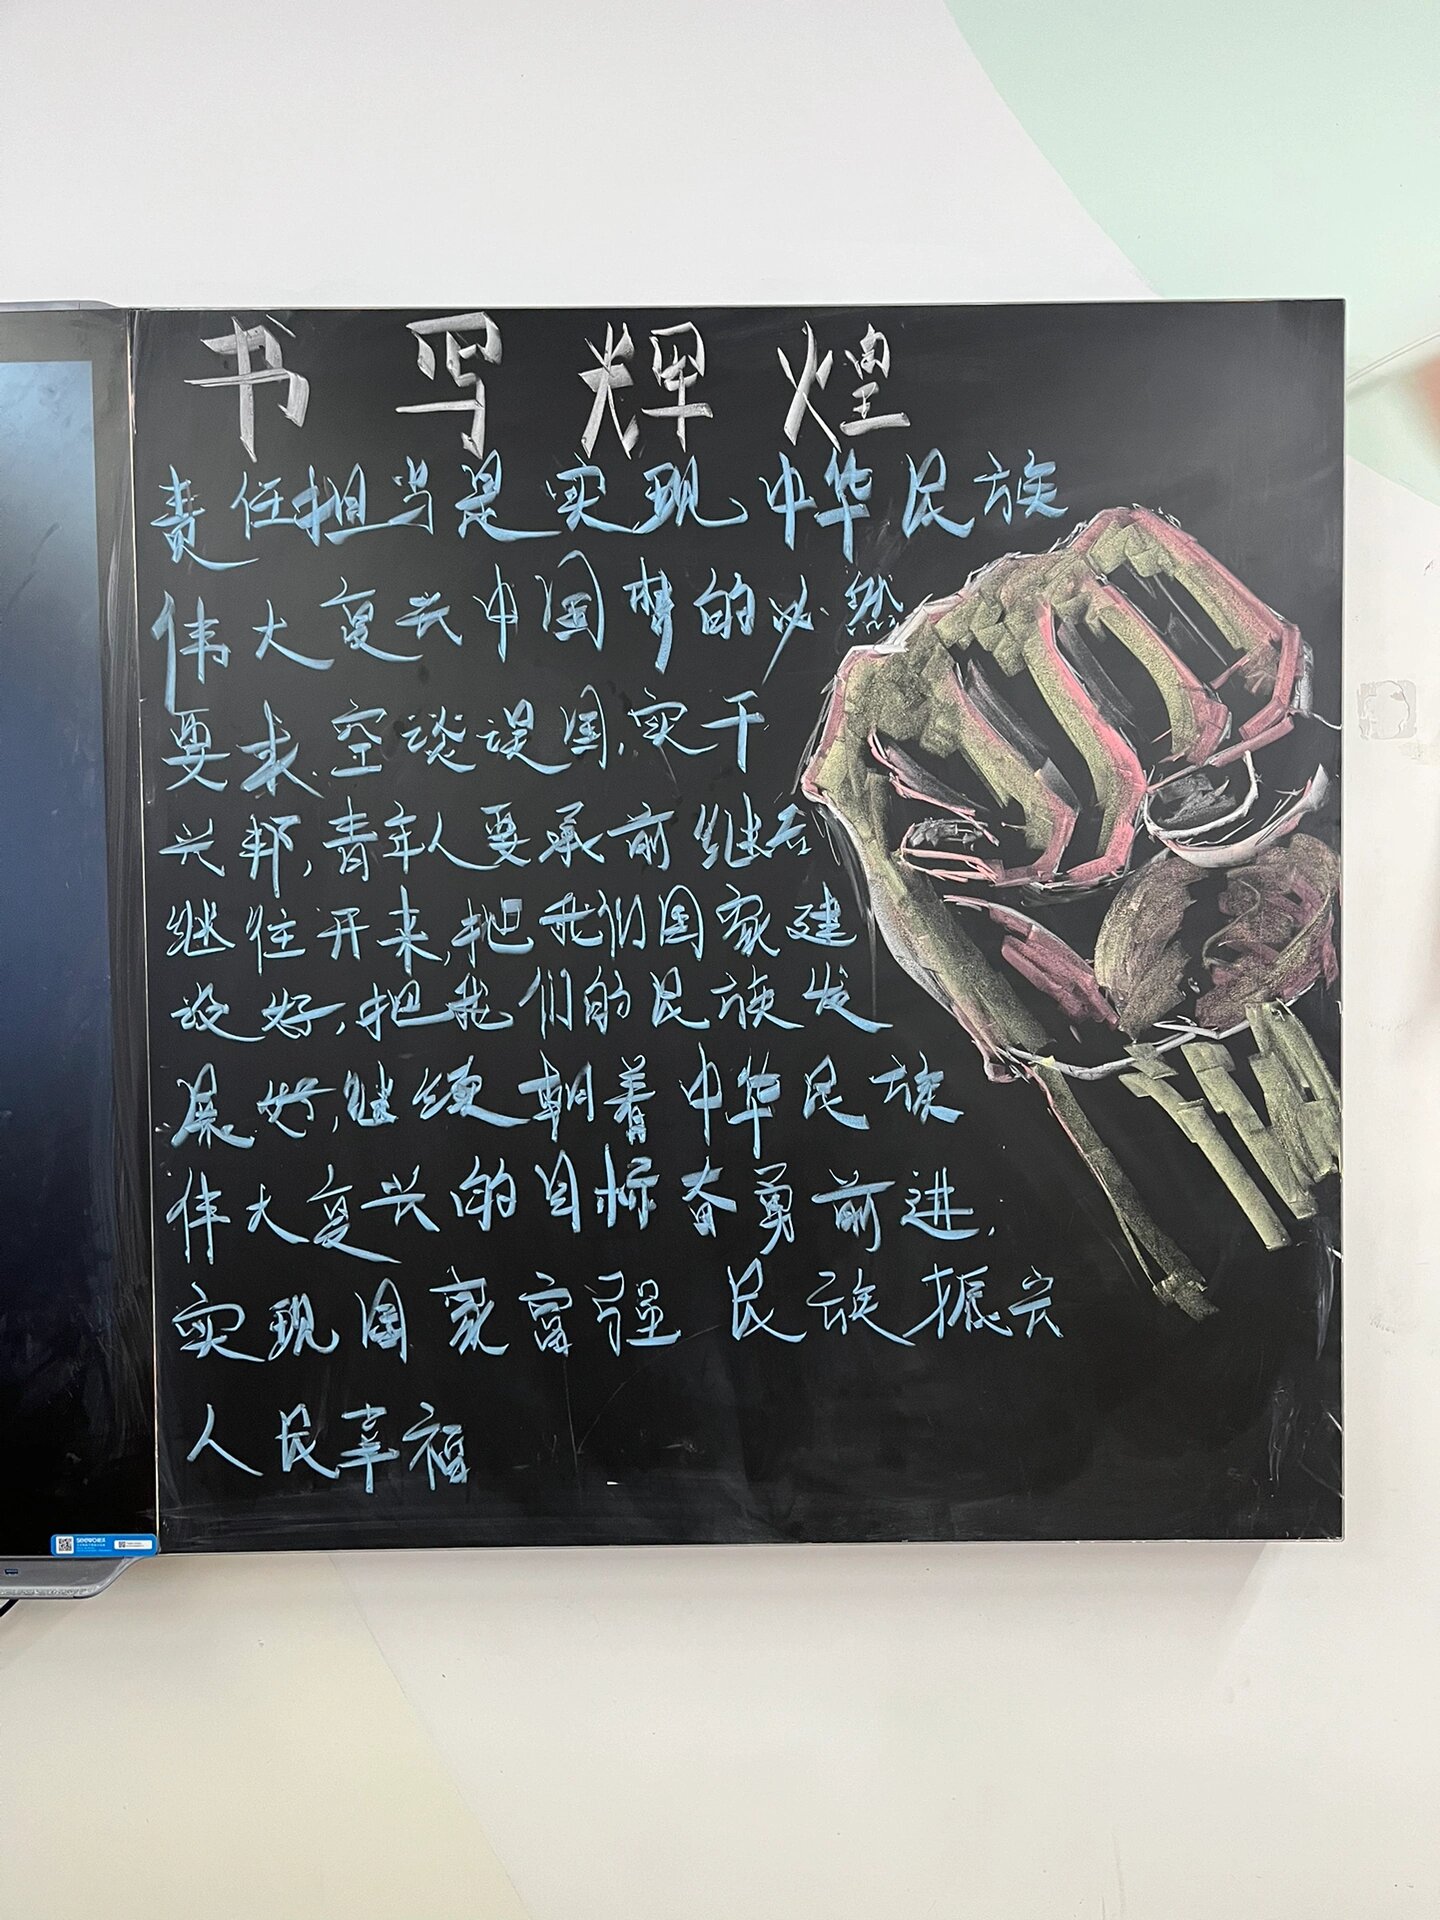 书写辉煌
责任担当是实现中华民族
伟大复兴中国梦的必然
要求.空谈误国,实干
兴邦,青年人要承前继后
继往开来,把我们国家建
设好,把我们的民族发
展好,继续朝着中华民族
伟大复兴的目标奋勇前进,
实现国家富强 民族振兴
人民幸福